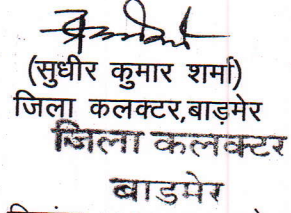 (सुधीर कुमार शर्मा)
जिला कलक्टर,बाड़मेर
जिला कलक्टर
बाडमेर